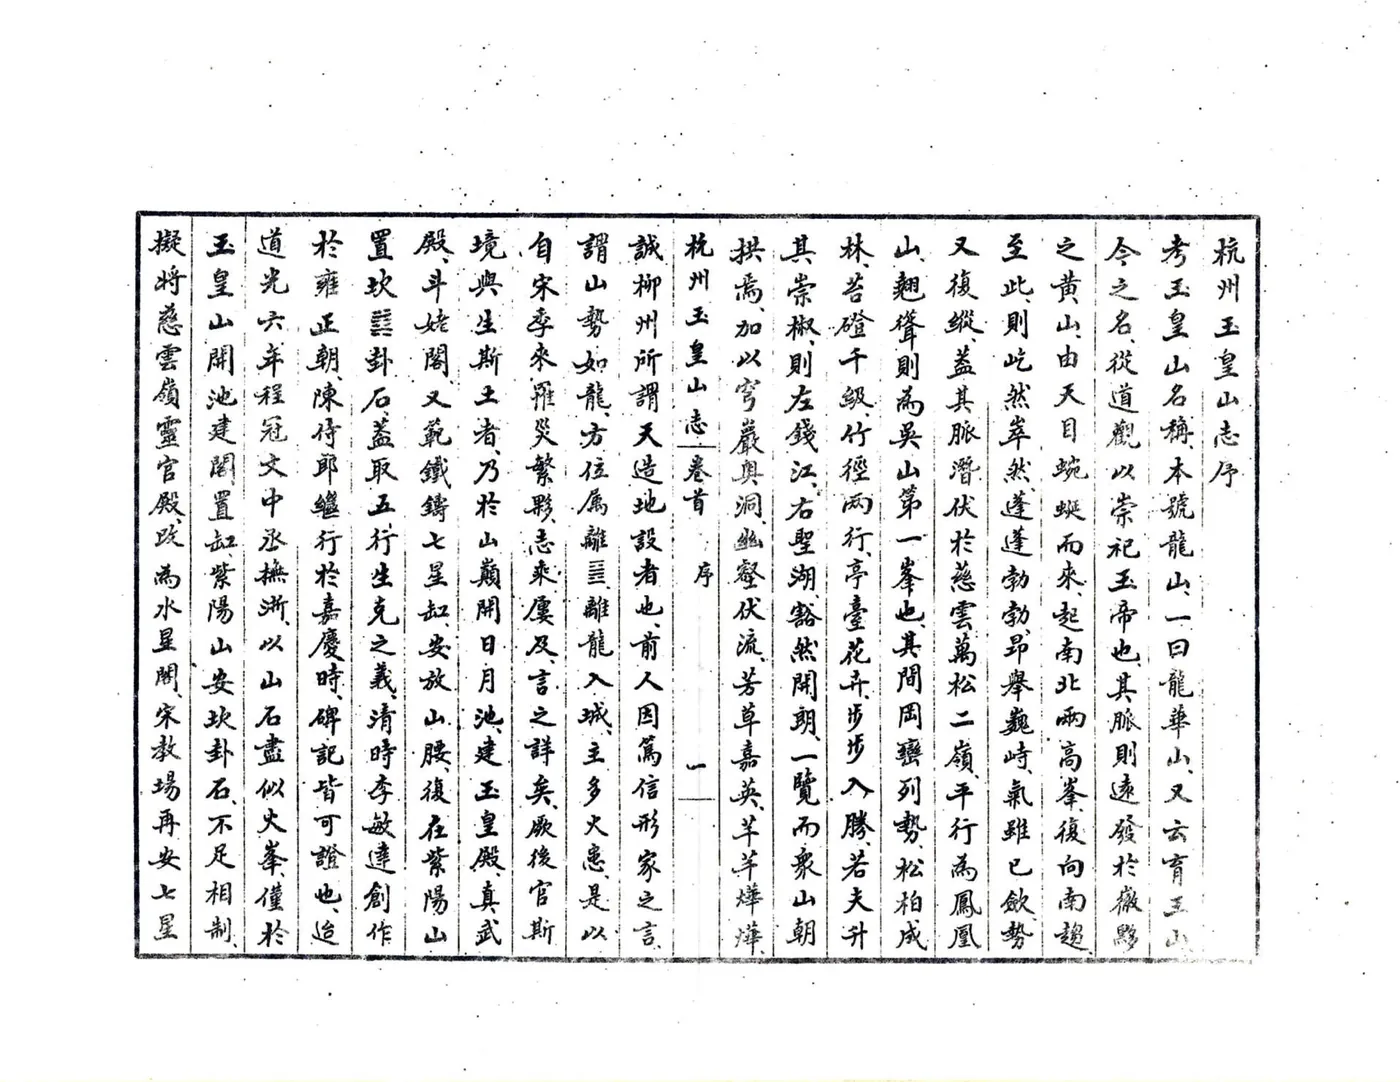 杭州玉皇山志序
考玉皇山名稱、本號龍山、一曰龍華山、又云育王山、
今之名、從道觀以崇祀玉帝也、其脈則遠發於徽黟
之黃山、由天目蜿蜒而來、起南北兩高峯、復向南趨
至此、則屹然崒然、蓬蓬勃勃、昂舉巍峙、氣雖已斂、勢
又復縱、蓋其脈潛伏於慈雲萬松二嶺、平行為鳳凰
山、翹聳則為吳山第一峯也、其間岡巒列勢、松柏成
林、苔磴千級、竹徑兩行、亭臺花卉、步步入勝、若夫升
其崇椒、則左錢江、右聖湖、豁然開朗、一覽而衆山朝
拱焉、加以穹巖奧洞、幽壑伏流、芳草嘉英、芊芊燁燁、
杭州玉皇山志 卷首 序 一
誠柳州所謂天造地設者也、前人因篤信形家之言、
謂山勢如龍、方位属離☲、離龍入城、主多火患、是以
自宋季來罹災繁夥、志乘屢及、言之詳矣、厥後官斯
境與生斯土者、乃於山巔開日月池、建玉皇殿、真武
殿、斗姥閣、又範鐵鑄七星缸、安放山腰、復在紫陽山
置坎☵卦石、蓋取五行生克之義、清時李敏達創作
於雍正朝、陳侍郎繼行於嘉慶時、碑記皆可證也、迨
道光六年程冠文中丞撫浙、以山石盡似火峯、僅於
玉皇山開池建閣置缸紫陽山安坎卦石、不足相制、
擬將慈雲嶺靈官殿、改為水星閣、宋教場再安七星